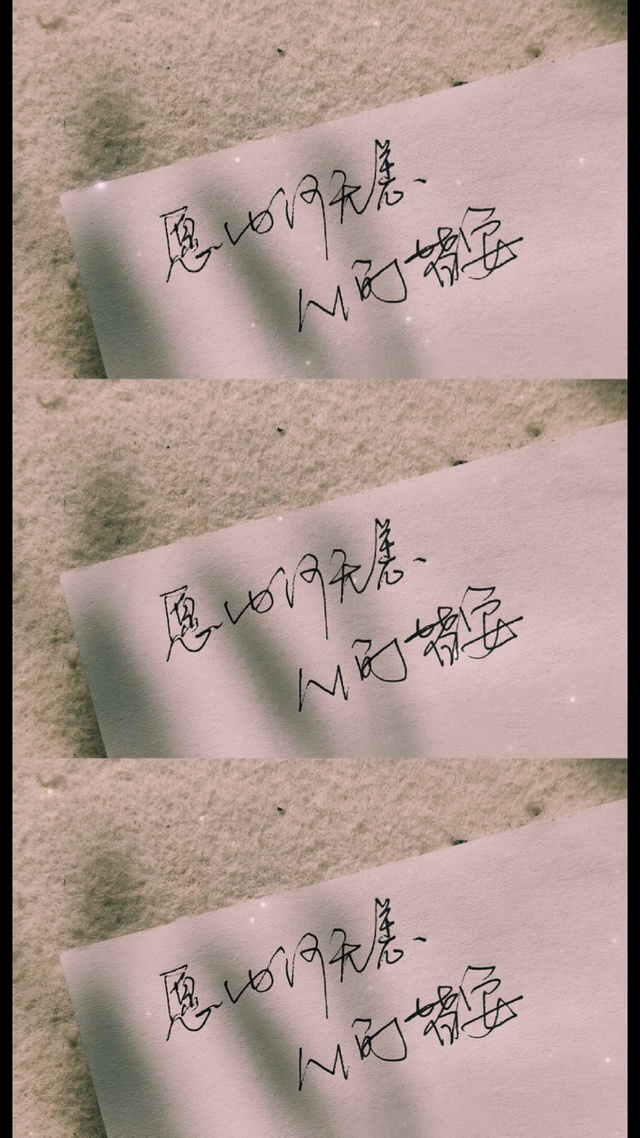 愿山河无恙、
人间皆安
愿山河无恙、
人间皆安
愿山河无恙、
人间皆安